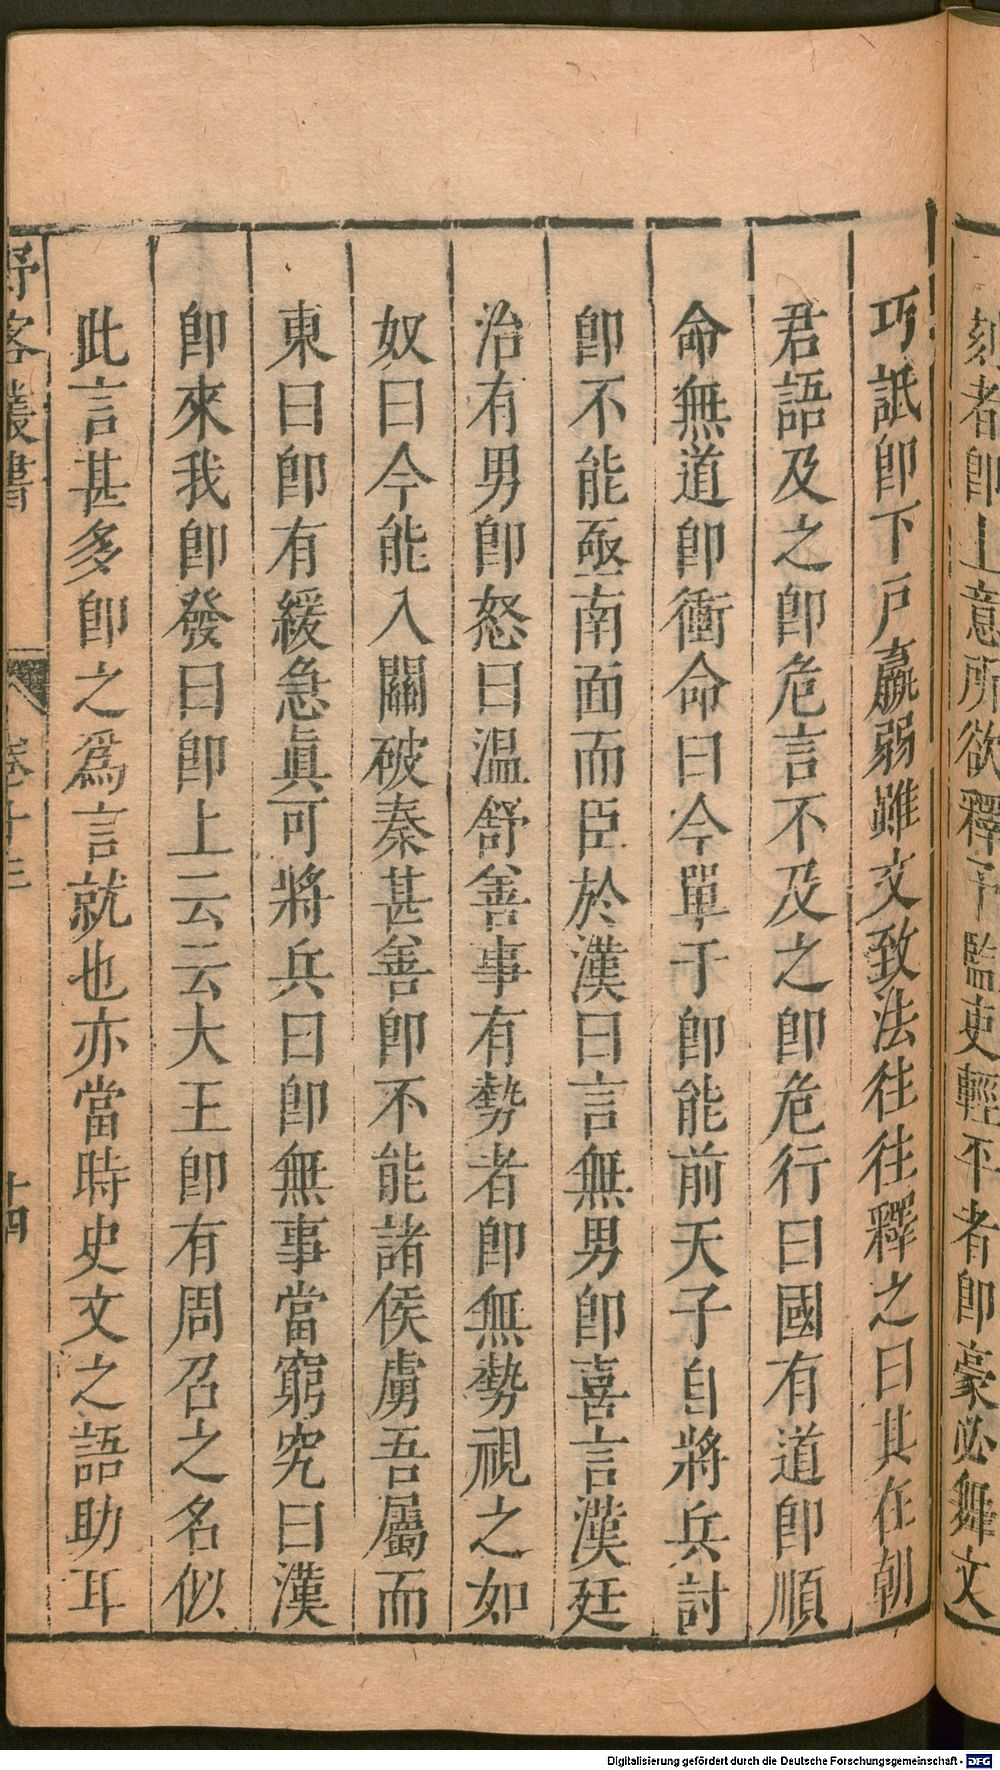 刻者卽上意所欲釋予監吏輕平者卽豪必舞文
巧詆卽下戶羸弱雖文致法往往釋之曰其在朝
君語及之卽危言不及之卽危行曰國有道卽順
命無道卽衝命曰今單于卽能前天子自將兵討
卽不能亟南面而臣於漢曰言無男卽喜言漢廷
治有男卽怒曰温舒善事有勢者卽無勢視之如
奴曰今能入關破秦甚善卽不能諸侯虜吾屬而
東曰卽有緩急眞可將兵曰卽無事當窮究曰漢
卽來我卽發曰卽上云云大王卽有周召之名似
此言甚多卽之爲言就也亦當時史文之語助耳
野客叢書
卷十三
十四
Digitalisierung gefördert durch die Deutsche Forschungsgemeinschaft - DFG